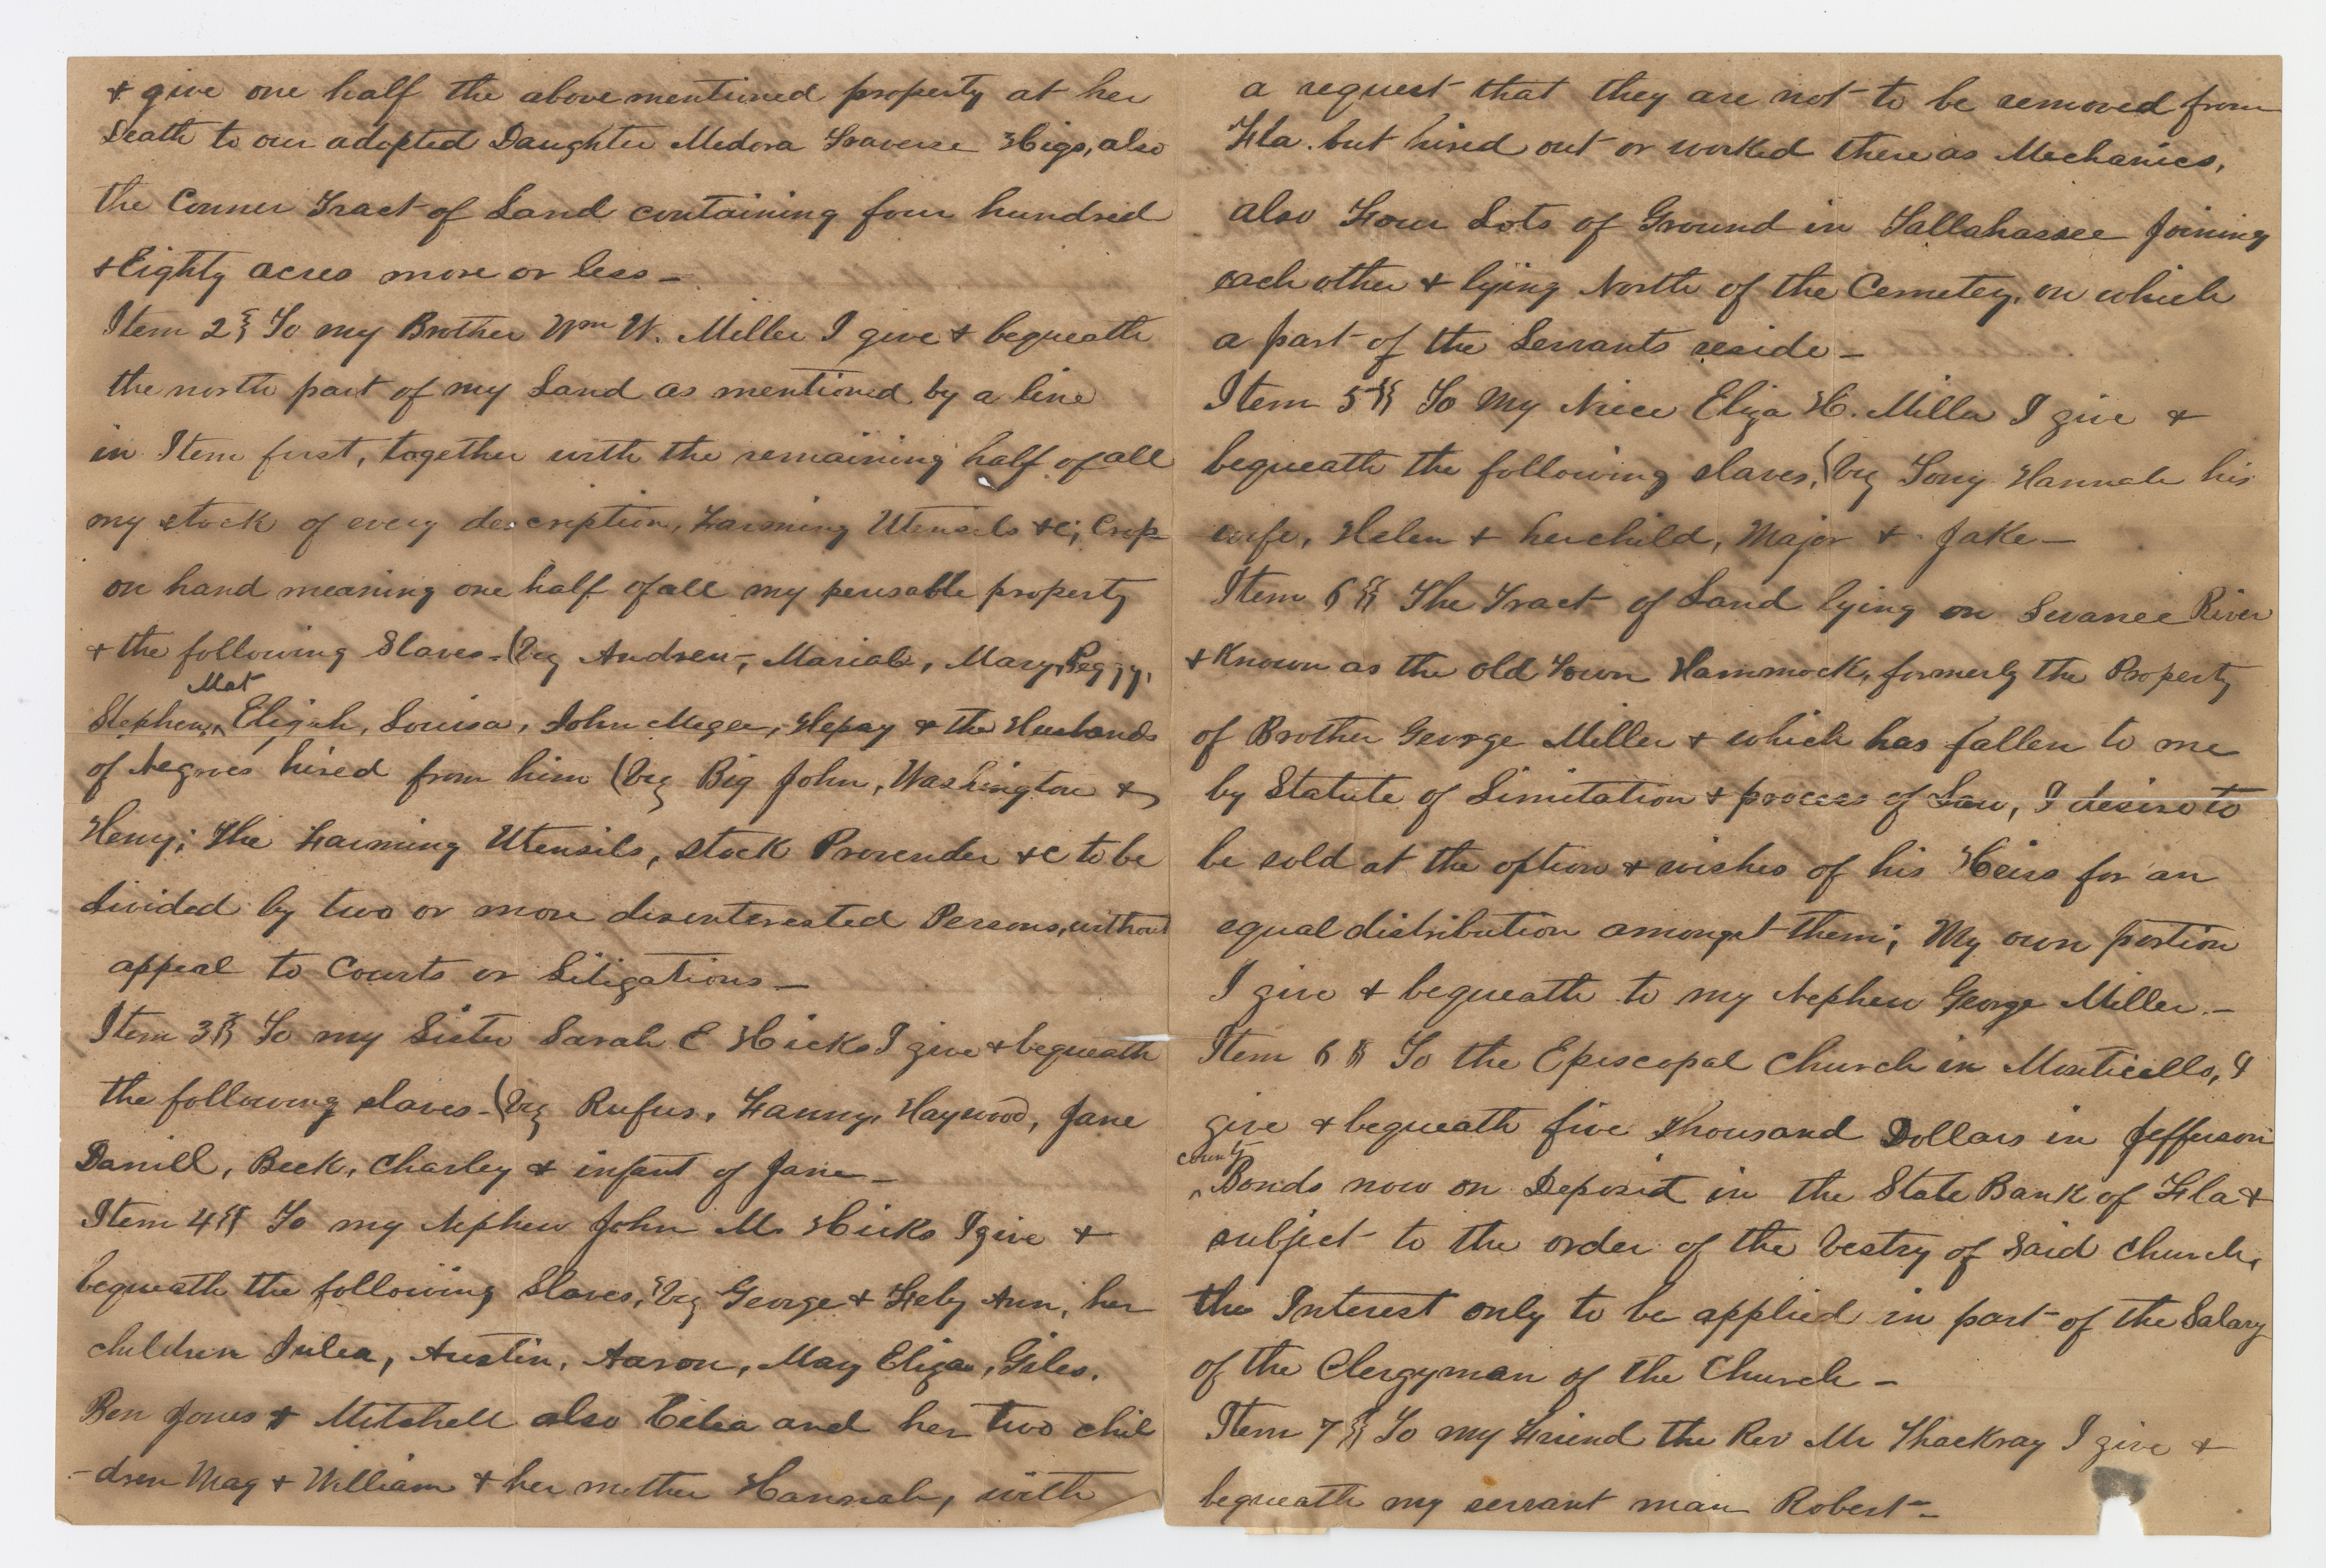 & give one half the above mentioned property at her
Death to our adopted Daughter Medora Traverse Higs, also
the Conner Tract of Land containing four hundred
& Eighty acres more or less —
Item 2 To my Brother Wm W. Miller I give & bequeath
the north part of my Land as mentioned by a line
in Item first, together with the remaining half of all
my stock of every description, Farming Utensils &c; Crop
on hand meaning one half of all my perisable property
& the following Slaves - (viz Andrew, Mariah, Mary, Peggy,
Mat
Stephen, Elijah, Louisa, John Megee, Hepsy & the Husbands
of Negroes hired from him (viz Big John, Washington &
Henry; The Farming Utensils, stock Provender &c to be
divided by two or more disenterested Persons, without
appeal to Courts or Litigations —
Item 3 To my Sister Sarah E Hicks I give & bequeath
the following slaves - (viz Rufus, Fanny, Haywood, Jane
Daniel, Beck, Charley & infant of Jane —
Item 4 To my Nephew John M. Hicks I give &
bequeath the following Slaves, viz George & Feby Ann, her
children Julea, Austin, Aaron, May Eliza, Giles.
Ben Jones & Mitchell also Celia and her two chil
-dren May & William & her mother Hannah, with
a request that they are not to be removed from
Fla. but hired out or worked there as Mechanics,
also Four Lots of Ground in Tallahassee Joining
each other & lying North of the Cemetey, on which
a part of the Servants reside —
Item 5 To My Niece Eliza H. Miller I give &
bequeath the following slaves, (viz Tony Hannah his
wife, Helen & her child, Major & Jake —
Item 6 The Tract of Land lying on Swanee River
& Known as the old Town Hammock, formerly the Property
of Brother George Miller & which has fallen to me
by Statute of Limitation & process of Law, I desire to
be sold at the option & wishes of his Heirs for an
equal distribution amongst them; My own portion
I give & bequeath to my Nephew George Miller. —
Item 6 To the Episcopal Church in Monticello, I
give & bequeath five thousand Dollars in Jefferson
county
Bonds now on Deposit in the State Bank of Fla &
subject to the order of the Vestry of said Church,
the Interest only to be applied in part of the Salary
of the Clergyman of the Church —
Item 7 To my Friend the Rev Mr Thackray I give &
bequeath my servant man Robert —